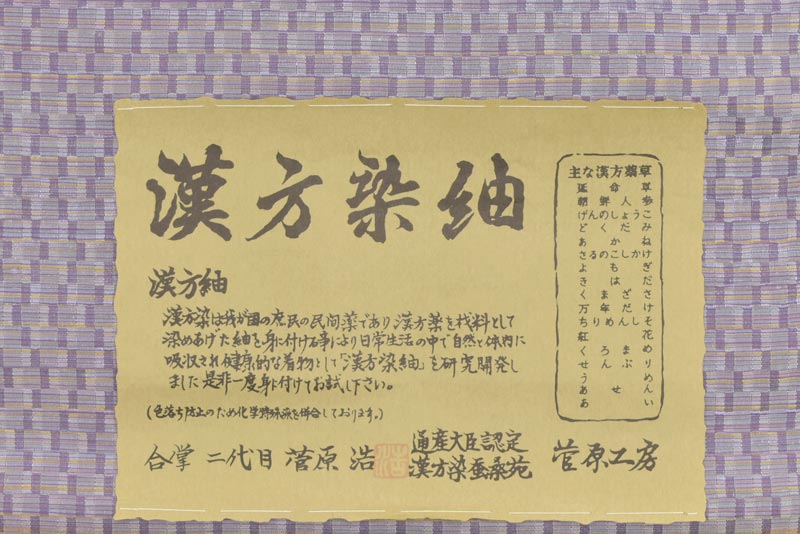 漢方染紬
漢方紬
漢方染は我が国の庶民の民間薬であり漢方薬を材料として
染めあげた紬を身に付ける事により日常生活の中で自然と体内に
吸収され健康的な着物として「漢方染紬」を研究開発し
ました是非一度身に付けてお試し下さい。
(色落ち防止のため化学野蚕染を併合しております。)
合掌 二代目 菅原 浩
通産大臣認定
漢方染蚕桑苑
菅原工房
主な漢方薬草
延命草
朝鮮人参
げんのしょうこ
どくだみ
あかね
さるのこしかけ
よもぎ
きはだ
くまざさ
万年だけ
ちりめんしそ
紅花
くろまめ
せんぶり
うせん
ああい